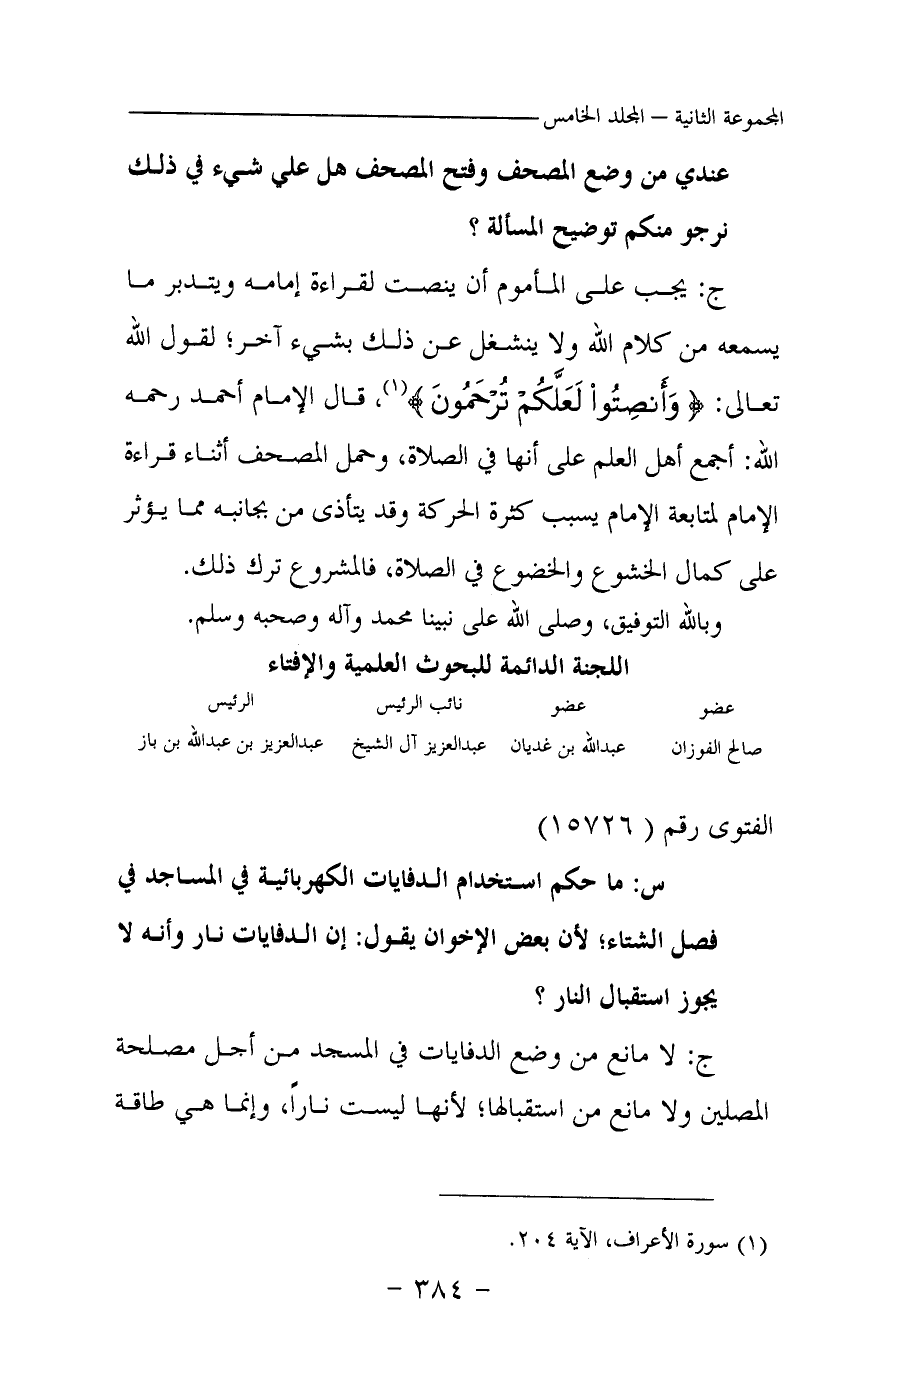 المجموعة الثانية – المجلد الخامس
عندي من وضع المصحف وفتح المصحف هل علي شيء في ذلك
نرجو منكم توضيح المسألة ؟
ج: يجب على المأموم أن ينصت لقراءة إمامه ويتدبر ما
يسمعه من كلام الله ولا ينشغل عن ذلك بشيء آخر؛ لقول الله
تعالى: ﴿ وَأَنصِتُواْ لَعَلَّكُمْ تُرْحَمُونَ ﴾(١)، قال الإمام أحمد رحمه
الله: أجمع أهل العلم على أنها في الصلاة، وحمل المصحف أثناء قراءة
الإمام لمتابعة الإمام يسبب كثرة الحركة وقد يتأذى من بجانبه مما يؤثر
على كمال الخشوع والخضوع في الصلاة، فالمشروع ترك ذلك.
وبالله التوفيق، وصلى الله على نبينا محمد وآله وصحبه وسلم.
اللجنة الدائمة للبحوث العلمية والإفتاء
عضو عضو نائب الرئيس الرئيس
صالح الفوزان عبدالله بن غديان عبدالعزيز آل الشيخ عبدالعزيز بن عبدالله بن باز
الفتوى رقم ( ١٥٧٢٦)
س: ما حكم استخدام الدفايات الكهربائية في المساجد في
فصل الشتاء؛ لأن بعض الإخوان يقول: إن الدفايات نار وأنه لا
يجوز استقبال النار ؟
ج: لا مانع من وضع الدفايات في المسجد من أجل مصلحة
المصلين ولا مانع من استقبالها؛ لأنها ليست ناراً، وإنما هي طاقة
(١) سورة الأعراف، الآية ٢٠٤.
- ٣٨٤ -